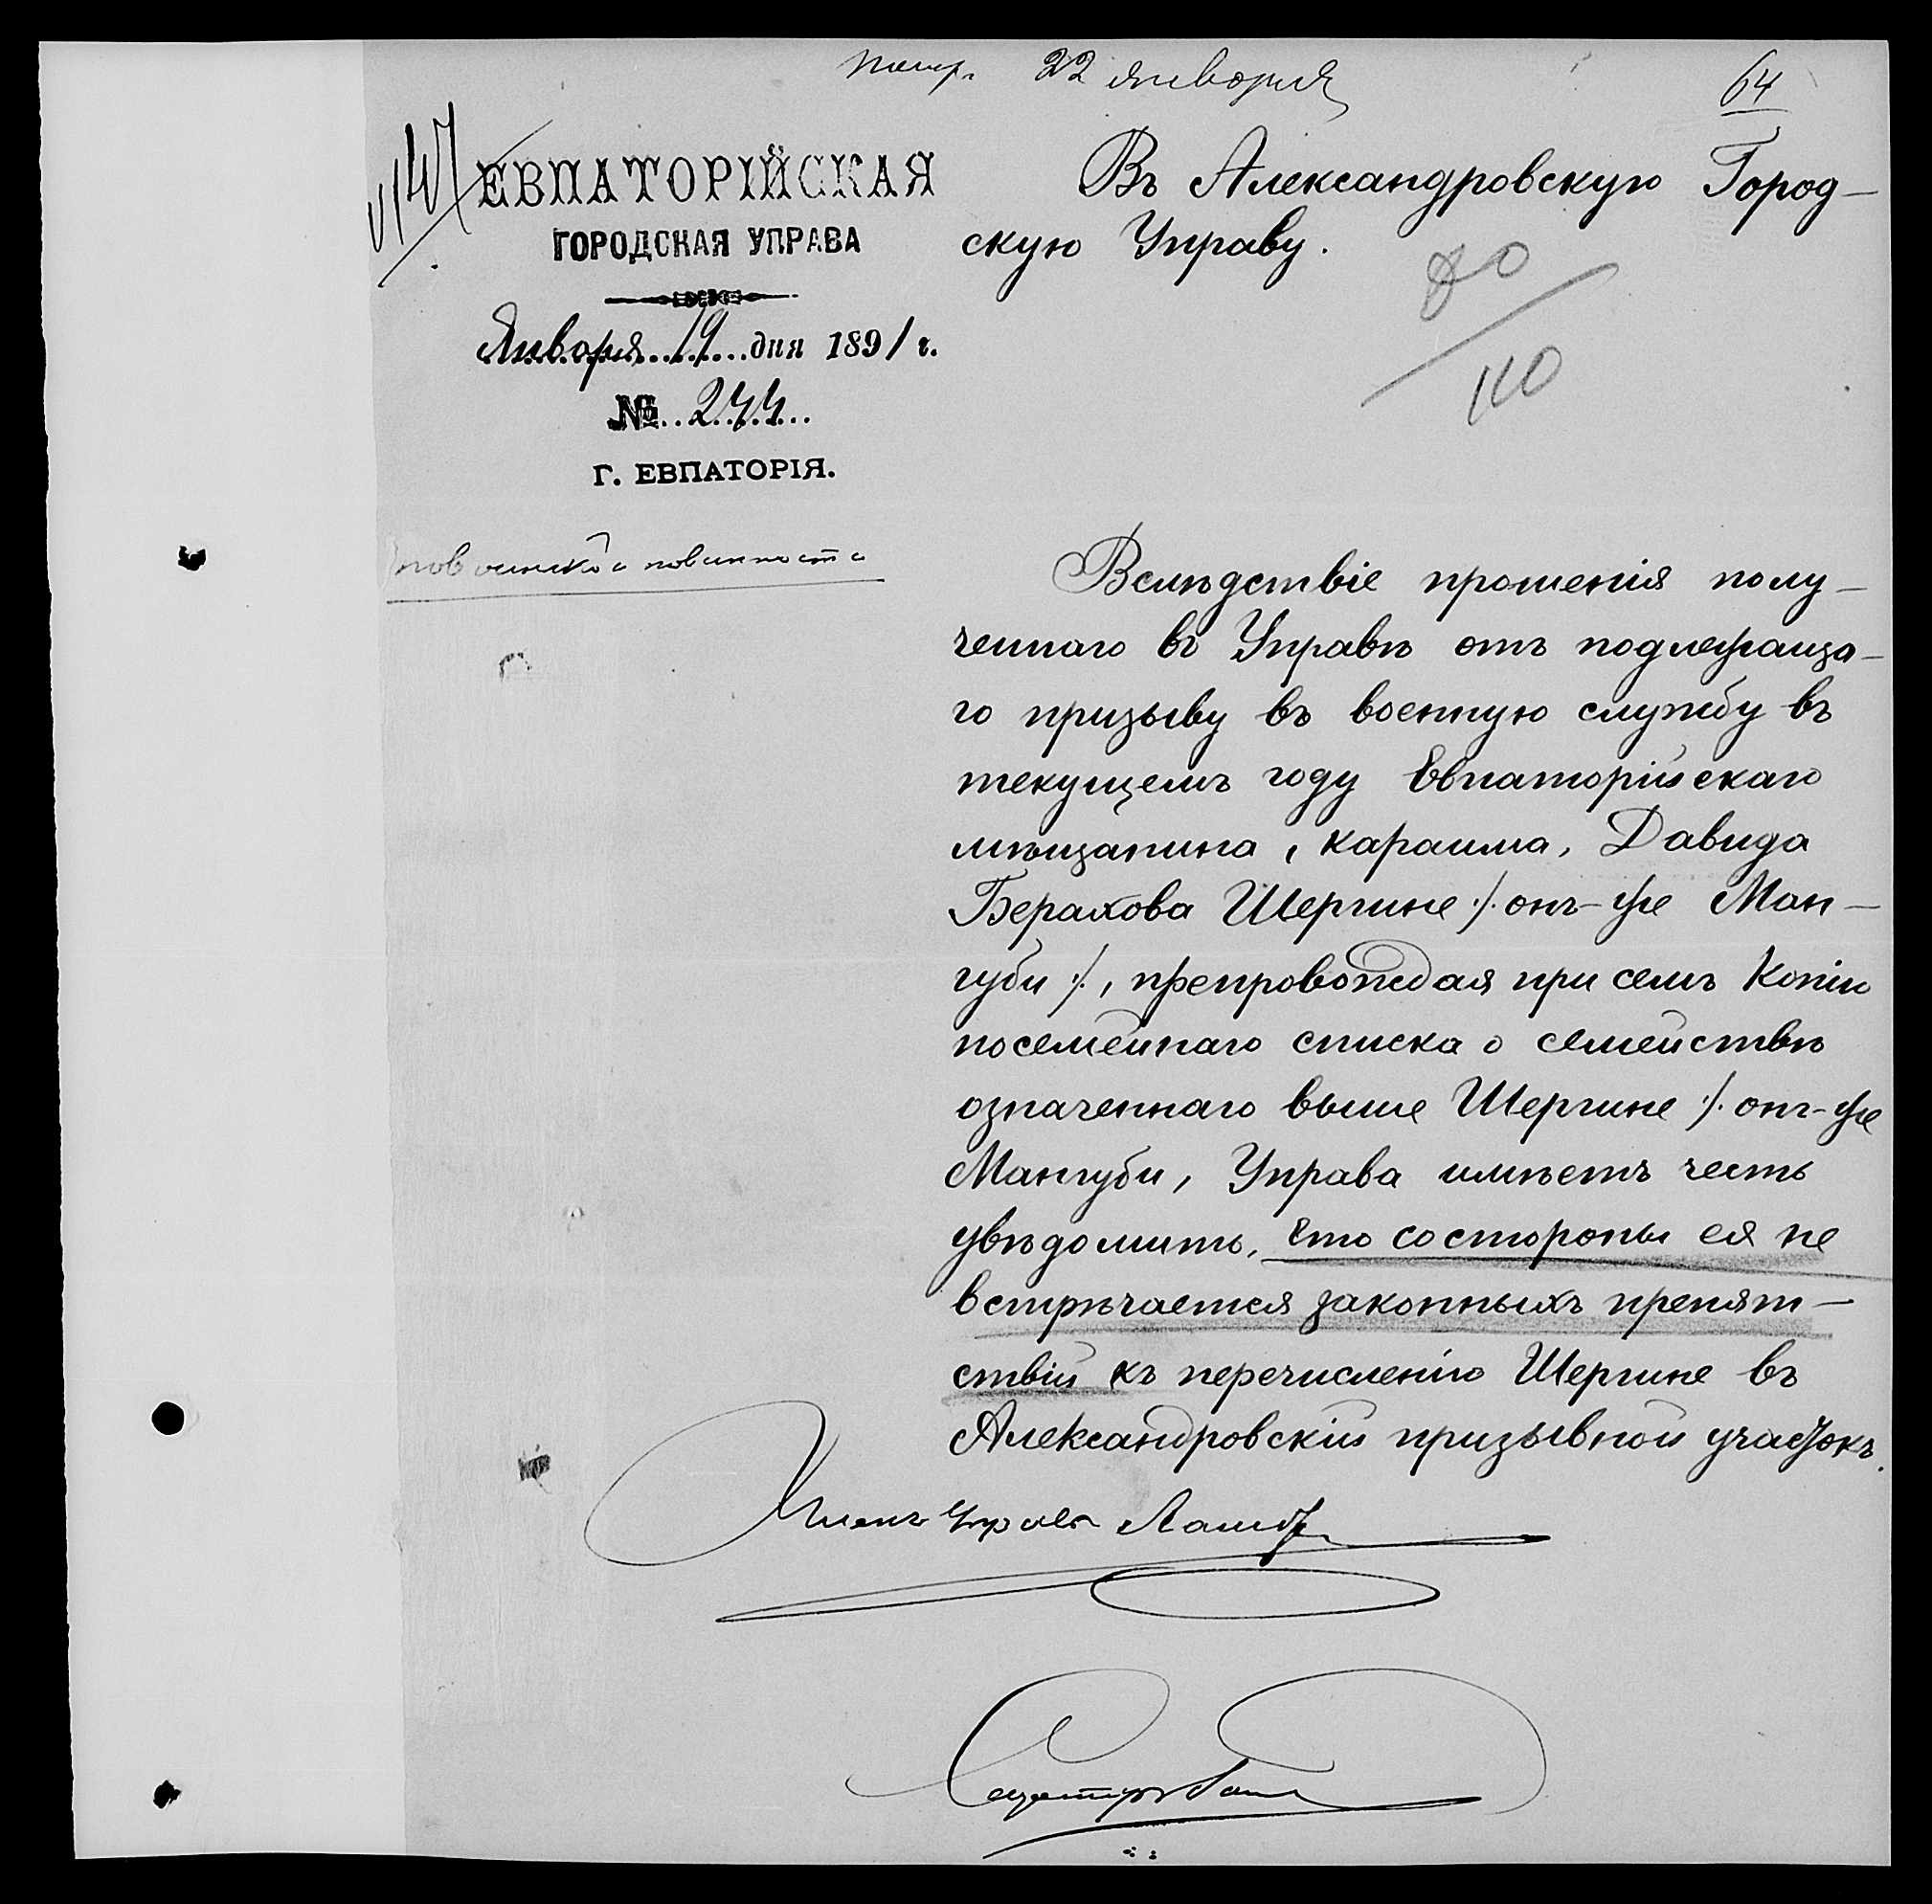 22 января
64
ЕВПАТОРІЙСКАЯ
ГОРОДСКАЯ УПРАВА
Января 19 дня 1891 г.
№ 244
Г. ЕВПАТОРІЯ.
по воинской повинности
Въ Александровскую Город-
скую Управу.
80
110
Вслѣдствіе прошенія полу-
ченнаго въ Управѣ отъ подлежаща-
го призыву въ военную службу въ
текущемъ году Евпаторійскаго
мѣщанина, караима, Давида
Берахова Шергине ./. онъ-же Ман-
губи ./., препровождая при семъ копію
посемейнаго списка о семействѣ
означеннаго выше Шергине ./. онъ-же
Мангуби, Управа имѣетъ честь
увѣдомить, что со стороны ея не
встрѣчается законныхъ препят-
ствій къ перечисленію Шергине въ
Александровскій призывной участокъ.
Членъ Управы
Секретарь